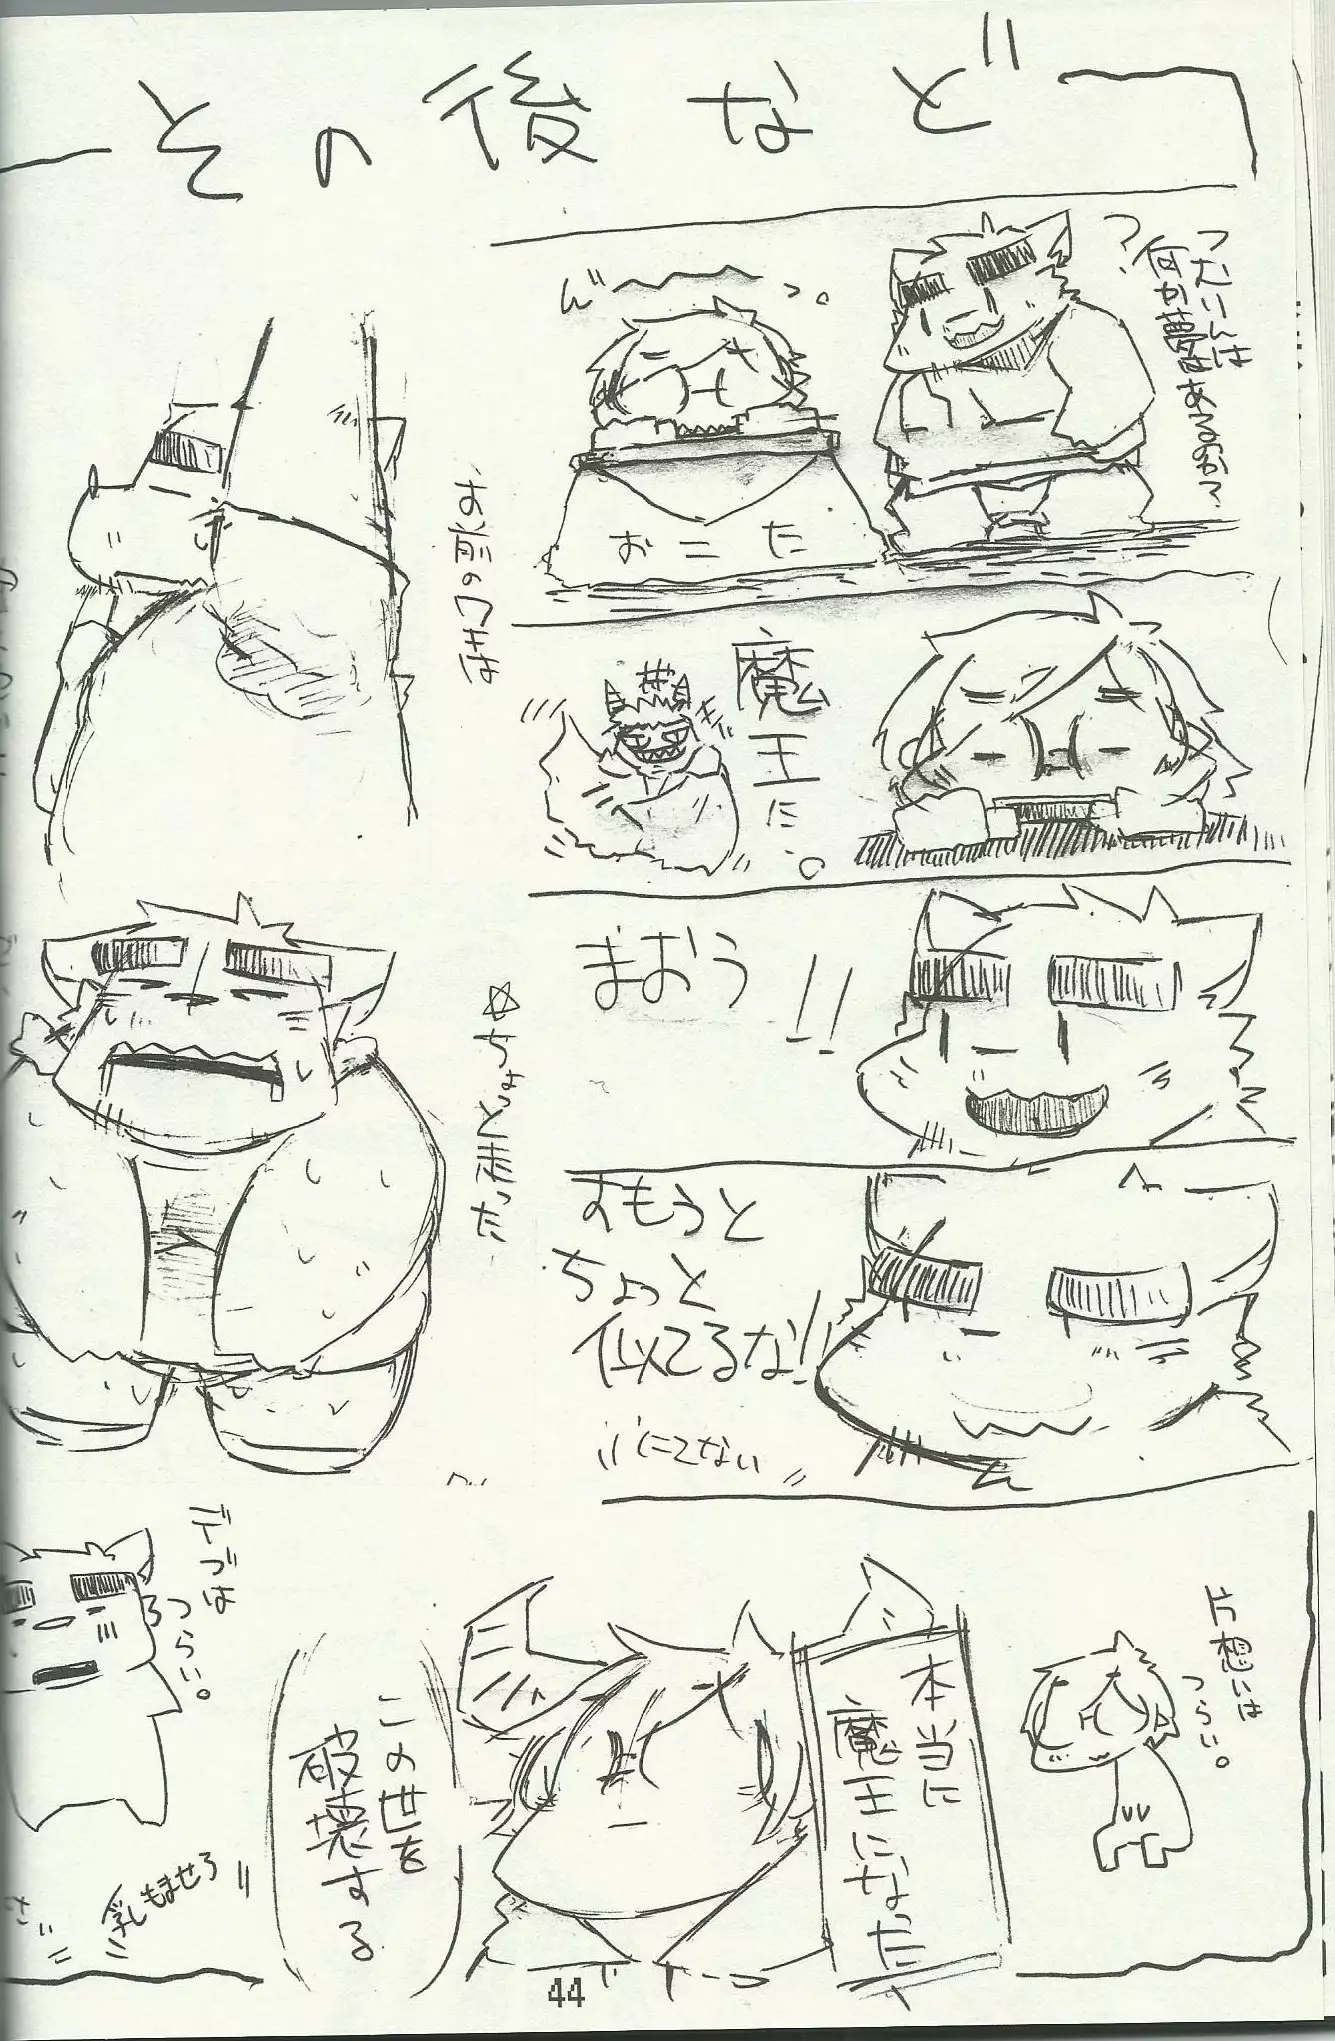 その後など
つむりんは
何か夢はあるのか?
っ?
ん゛ ～ っ。
おこた
魔王に。
まおう!!
すもうと
ちょっと
似てるな!!
"にてない"
☆ちょっと走った
片想いは
つらい。
本当に
魔王になった
この世を
破壊する
デブは
つらい。
乳もませろ
44